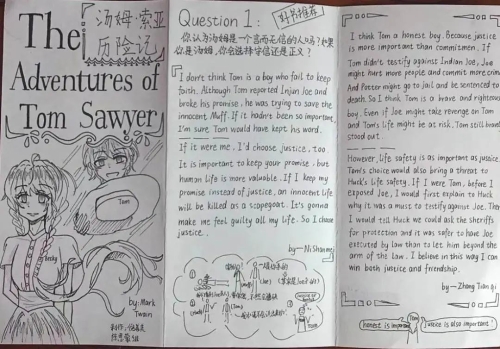 The
汤姆·索亚
历险记
Adventures of
Tom Sawyer
Tom
Becky
by: Mark
Twain
Question 1:
好书推荐
你认为汤姆是一个言而无信的人吗？如果
你是汤姆，你会选择守信还是正义？
I don't think Tom is a boy who fail to keep
faith. Although Tom reported Injan Joe and
broke his promise, he was trying to save the
innocent Muff. If it hadn't been so important,
I'm sure Tom would have kept his word.
If it were me, I'd choose justice, too.
It is important to keep your promise, but
human life is more valuable. If I keep my
promise instead of justice, an innocent life
will be killed as a scapegoat. It's gonna
make me feel guilty all my life. So I choose
justice.
by—Ni Shanmei
I think Tom a honest boy. Because justice
is more important than commitmen. If
Tom didn't testify against Indian Joe, Joe
might hurt more people and commit more crime
And Potter might go to jail and be sentenced to
death. So I think Tom is a brave and righteous
boy. Even if Joe might take revenge on Tom
and Tom's life might be at risk. Tom still brave
stood out.
However, Life safety is as important as justice
Tom's choice would also bring a threat to
Huck's life safety. If I were Tom, before I
exposed Joe, I would first explain to Huck
why it was a must to testify against Joe. Then
I would tell Huck we could ask the sheriffs
for protection and it was safer to have Joe
executed by law than to let him beyond the
arm of the law. I believe in this way I can
win both justice and friendship.
by—Zhang Tian qi
honest is important
Tom
justice is also important!